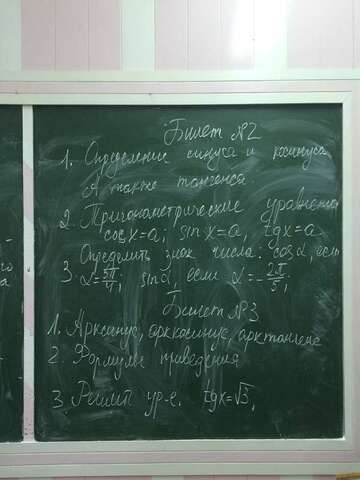 Билет №2
1. Определение синуса и косинуса
А также тангенса
2. Тригонометрические уравнения
cos x=a; sin x=a, tgx=a
3 Определить знак числа: cosα, если
α=5π/4, sinα, если α=-2π/5,
Билет №3
1. Арксинус, арккосинус, арктангенс
2. Формулы приведения
3. Решить ур-е. tgx=√3,